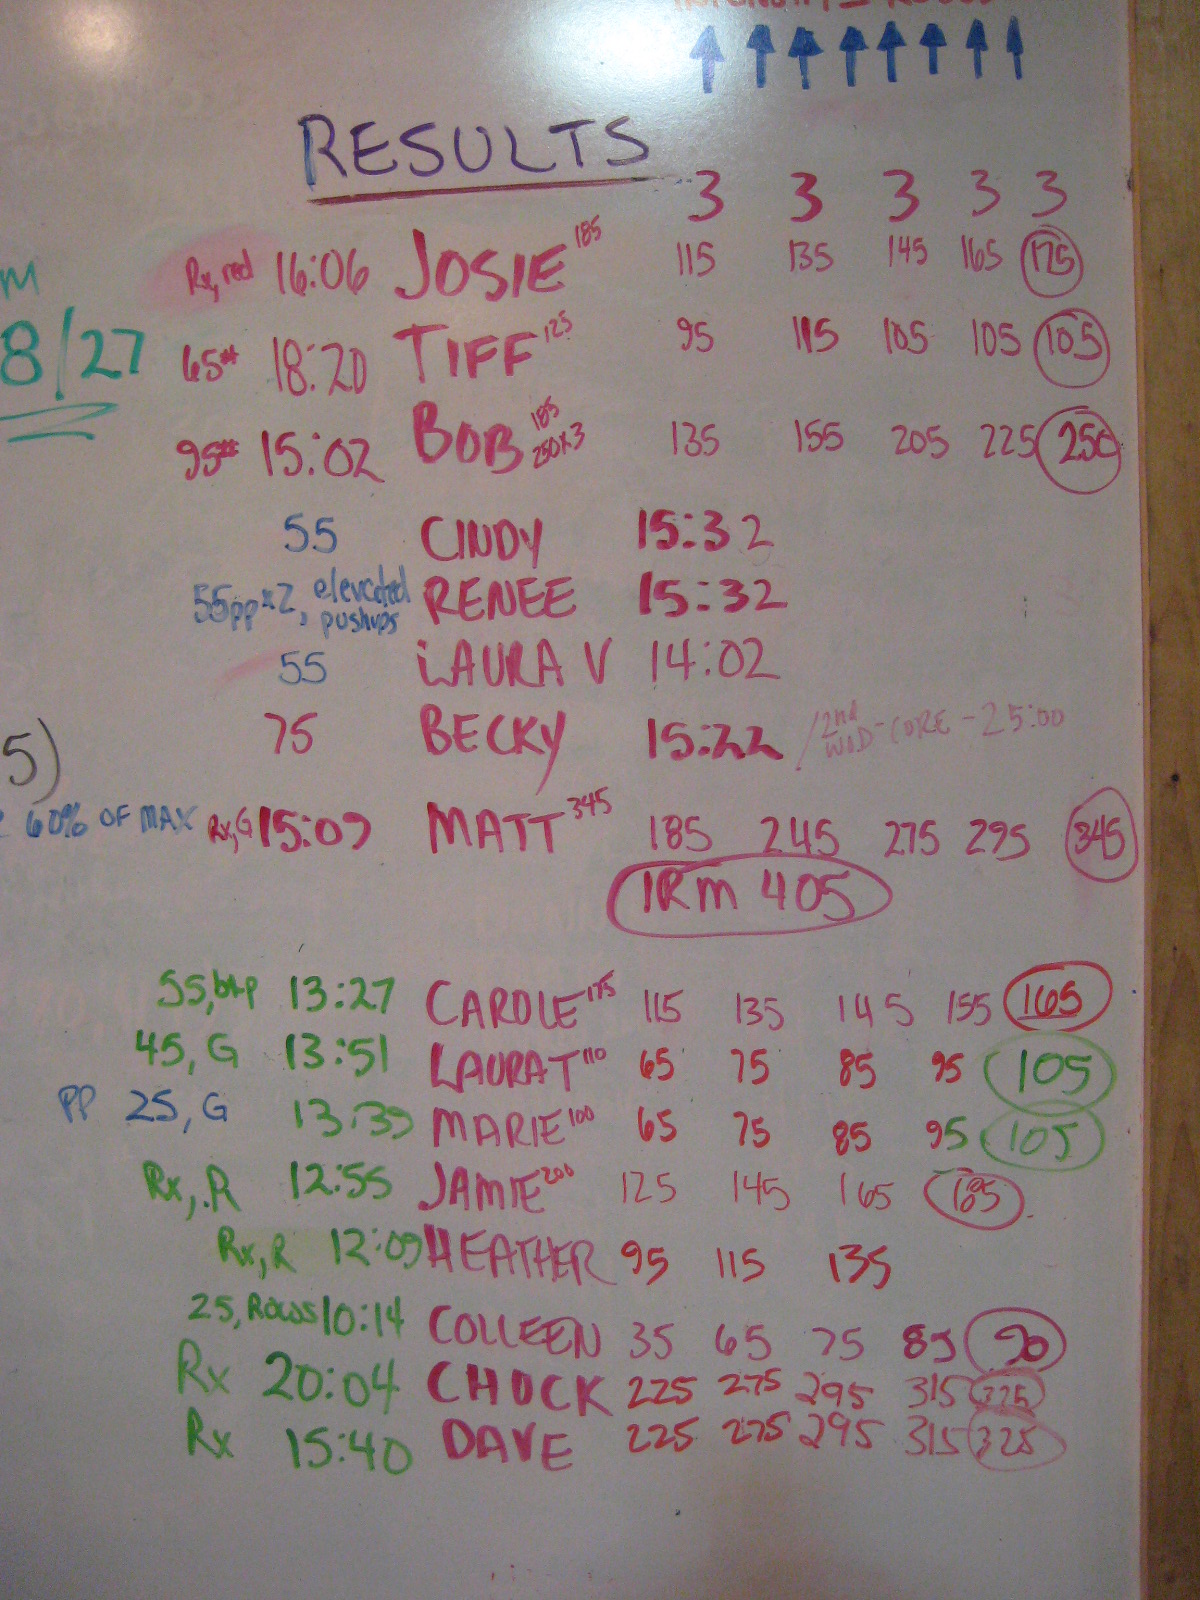 RESULTS
3 3 3 3 3
M
8/27
Rx, red 16:06 JOSIE 185 115 135 145 165 175
65# 18:20 TIFF 125 95 115 105 105 105
95# 15:02 BOB 185 250x3 135 155 205 225 250
55 CINDY 15:32
55pp x2, elevated pushups RENEE 15:32
55 LAURA V 14:02
75 BECKY 15:22 /2nd WOD - CORE - 25:00
5)
60% OF MAX Rx, G 15:09 MATT 345 185 245 275 295 345
1RM 405
55, b+p 13:27 CAROLE 175 115 135 145 155 165
45, G 13:51 LAURA T 110 65 75 85 95 105
PP 25, G 13:39 MARIE 100 65 75 85 95 105
Rx, R 12:55 JAMIE 200 125 145 165 185
Rx, R 12:09 HEATHER 95 115 135
25, Rows 10:14 COLLEEN 35 65 75 85 90
Rx 20:04 CHUCK 225 275 295 315 325
Rx 15:40 DAVE 225 275 295 315 325